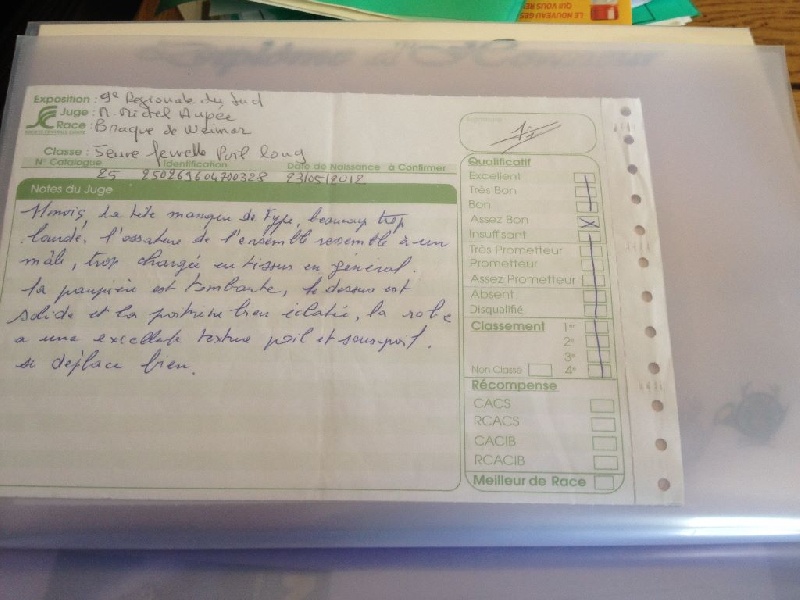 LE NOUVEAU GES
QUI VOUS RE
Exposition : 9e Regionale du Sud
Juge : M. Michel
Race : Braque de Weimar
Classe : Jeune femelle Poil long
N° Catalogue Identification Date de Naissance à Confirmer
25 23/05/2012
Notes du Juge
la tête manque de type, beaucoup trop
lourde, l'ossature de l'ensemble ressemble à un
mâle, trop chargée en tissus en général.
la paupière est tombante, le dessus est
solide et la poitrine bien éclatée, la robe
a une excellente texture poil et sous-poil.
se déplace bien.
Qualificatif
Excellent
Très Bon
Bon
Assez Bon X
Insuffisant
Très Prometteur
Prometteur
Assez Prometteur
Absent
Disqualifié
Classement 1er
2e
3e
Non Classé 4e
Récompense
CACS
RCACS
CACIB
RCACIB
Meilleur de Race